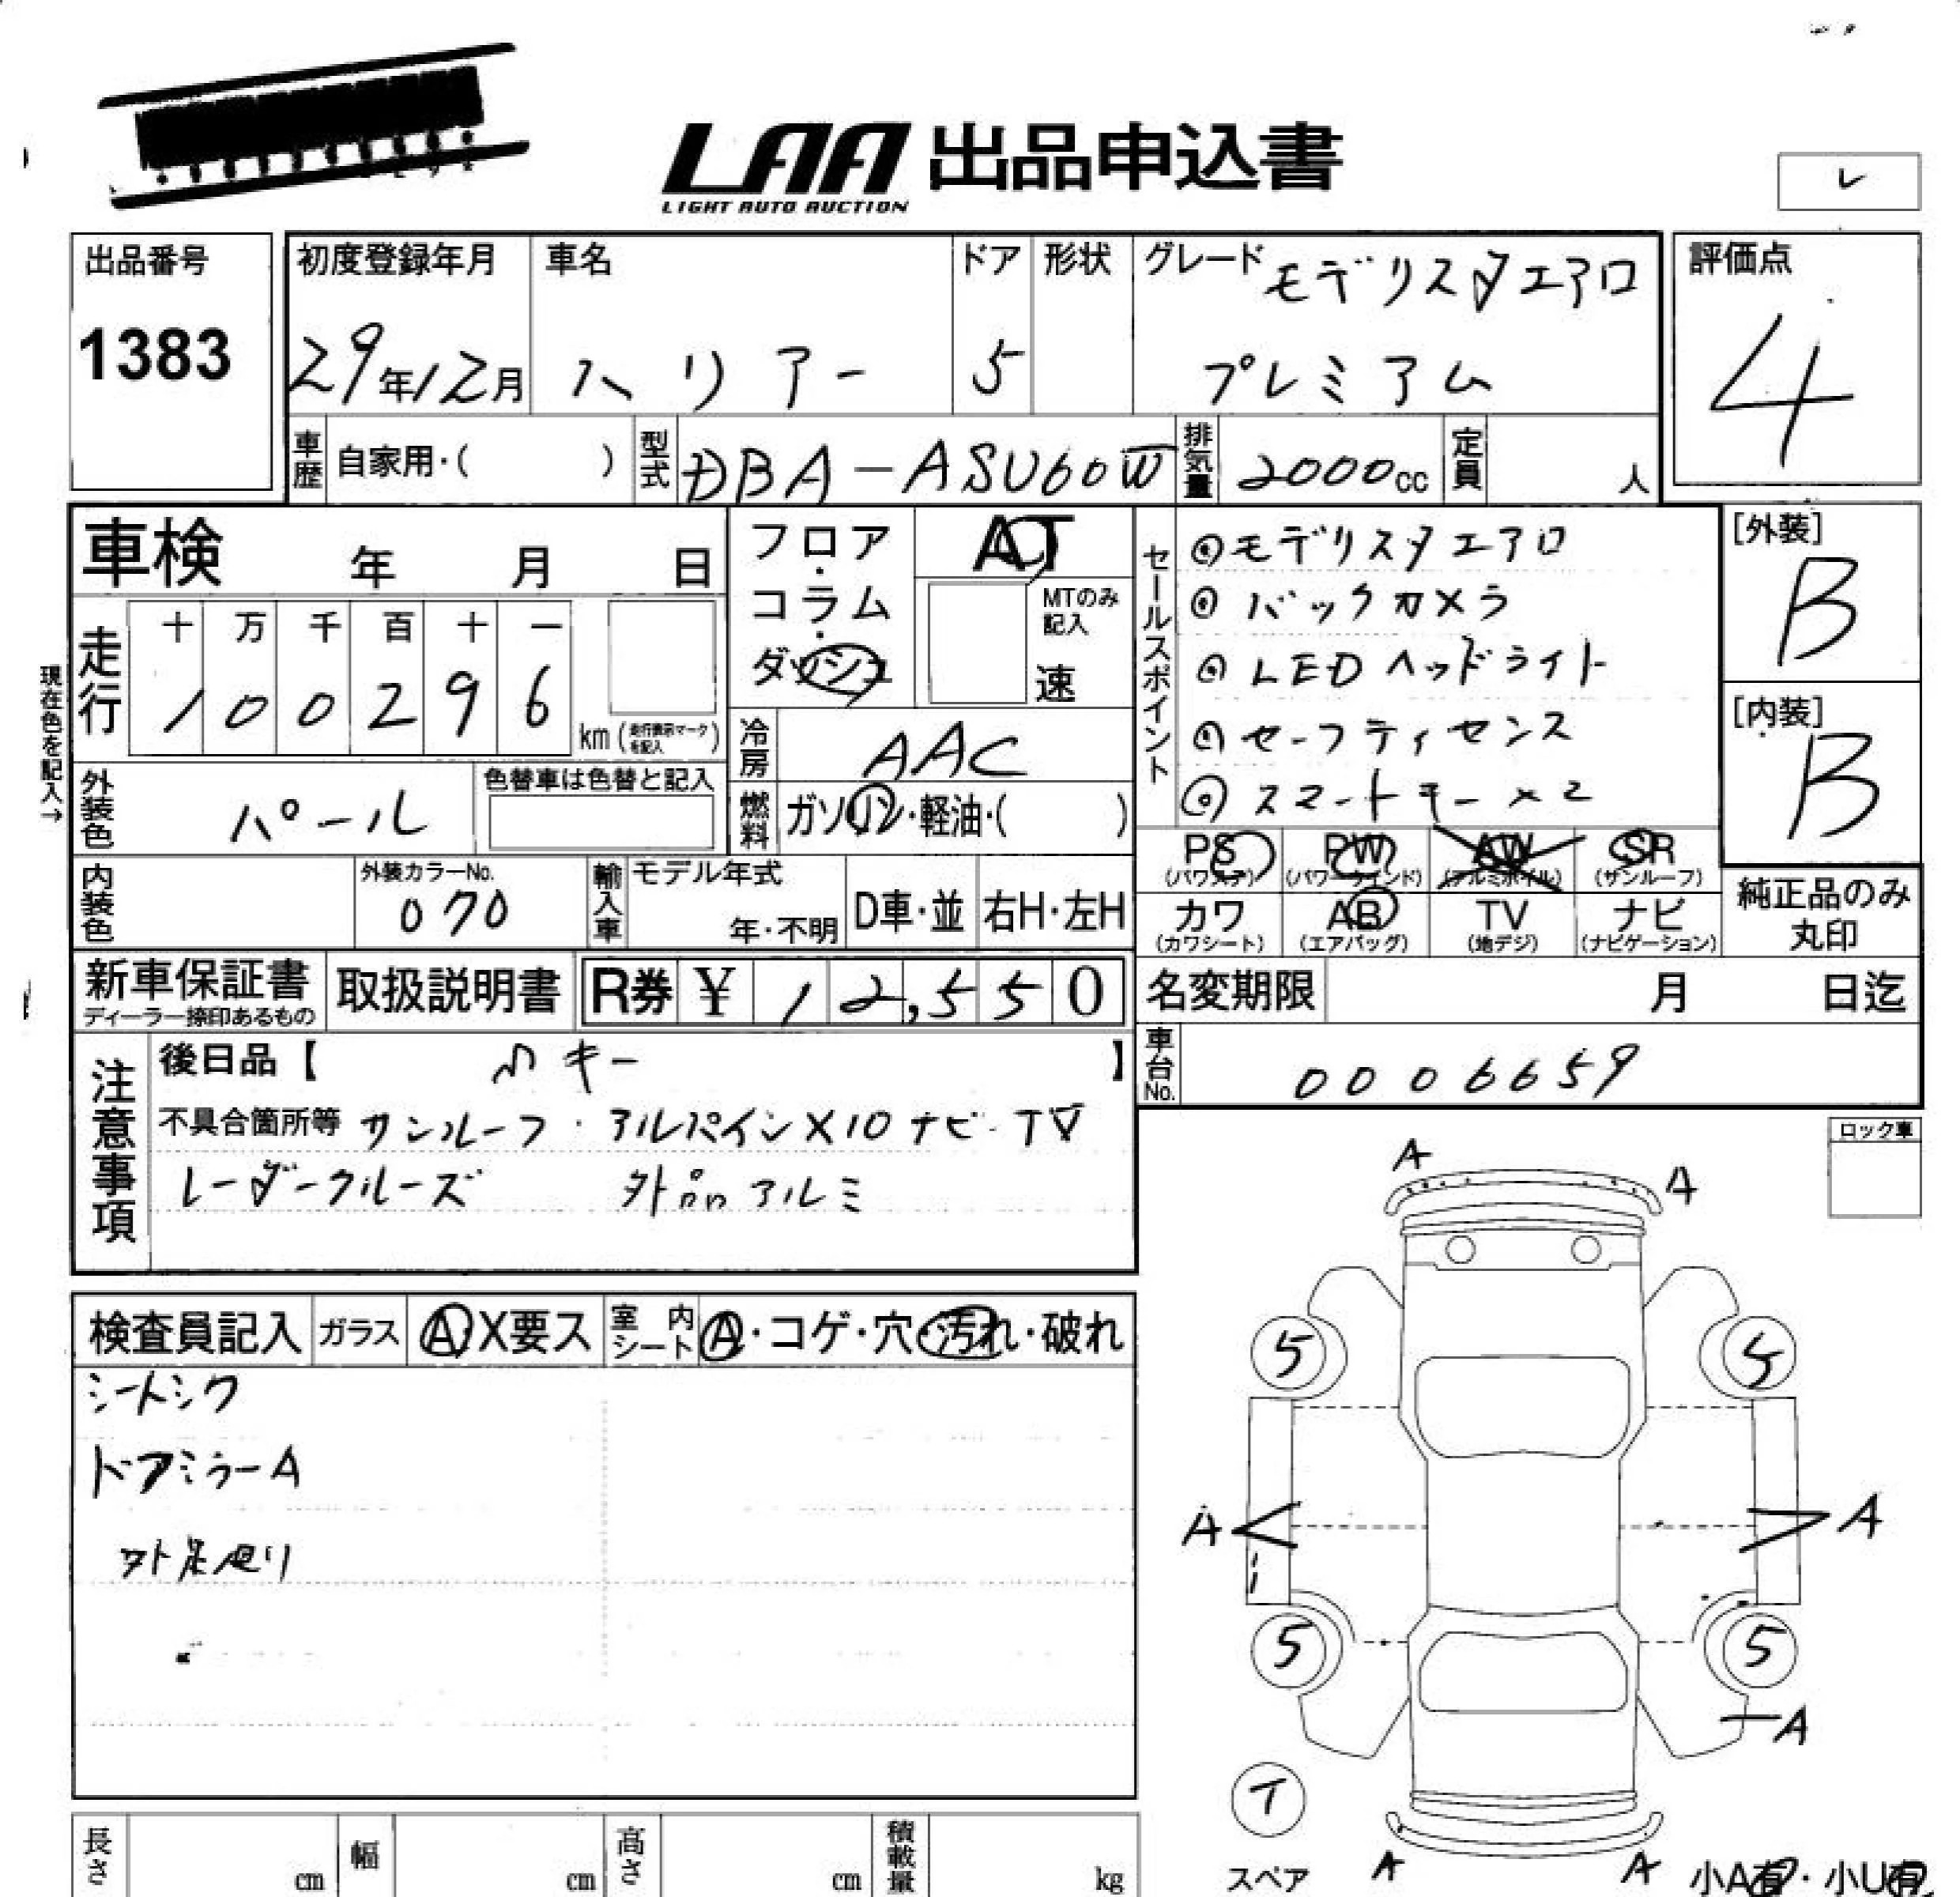 LAA 出品申込書
LIGHT AUTO AUCTION
レ
出品番号
1383
初度登録年月
29年12月
車名
ハリアー
ドア
5
形状
グレード モデリスタエアロ
プレミアム
評価点
4
車歴 自家用・( )
型式 DBA-ASU60W
排気量 2000cc
定員 人
車検 年 月 日
フロア・コラム・ダッシュ
AT
MTのみ記入
速
セールスポイント
◎モデリスタエアロ
◎バックカメラ
◎LEDヘッドライト
◎セーフティセンス
◎スマートキー×2
[外装]
B
[内装]
B
現在色を記入→
走行
十 万 千 百 十 一
1 0 0 2 9 6
km(走行表示マークを記入)
冷房 AAC
外装色 パール
色替車は色替と記入
燃料 ガソリン・軽油・( )
PS (パワステ)
PW (パワーウィンド)
AW (アルミホイル)
SR (サンルーフ)
カワ (カワシート)
AB (エアバッグ)
TV (地デジ)
ナビ (ナビゲーション)
純正品のみ
丸印
内装色
外装カラーNo.
070
輸入車
モデル年式
年・不明
D車・並
右H・左H
新車保証書
ディーラー捺印あるもの
取扱説明書
R券 ¥ 12,550
名変期限 月 日迄
車台No. 0006659
注意事項
後日品【 キー 】
不具合箇所等 サンルーフ・アルパインX10ナビ-TV
レーダークルーズ 外品アルミ
ロック車
検査員記入
ガラス A・X要ス
室内シート A・コゲ・穴・汚れ・破れ
シートシワ
ドアミラーA
外足廻り
A A
5 5
A A
5 5
A
T
スペア
A A
小A有・小U有
長さ cm
幅 cm
高さ cm
積載量 kg